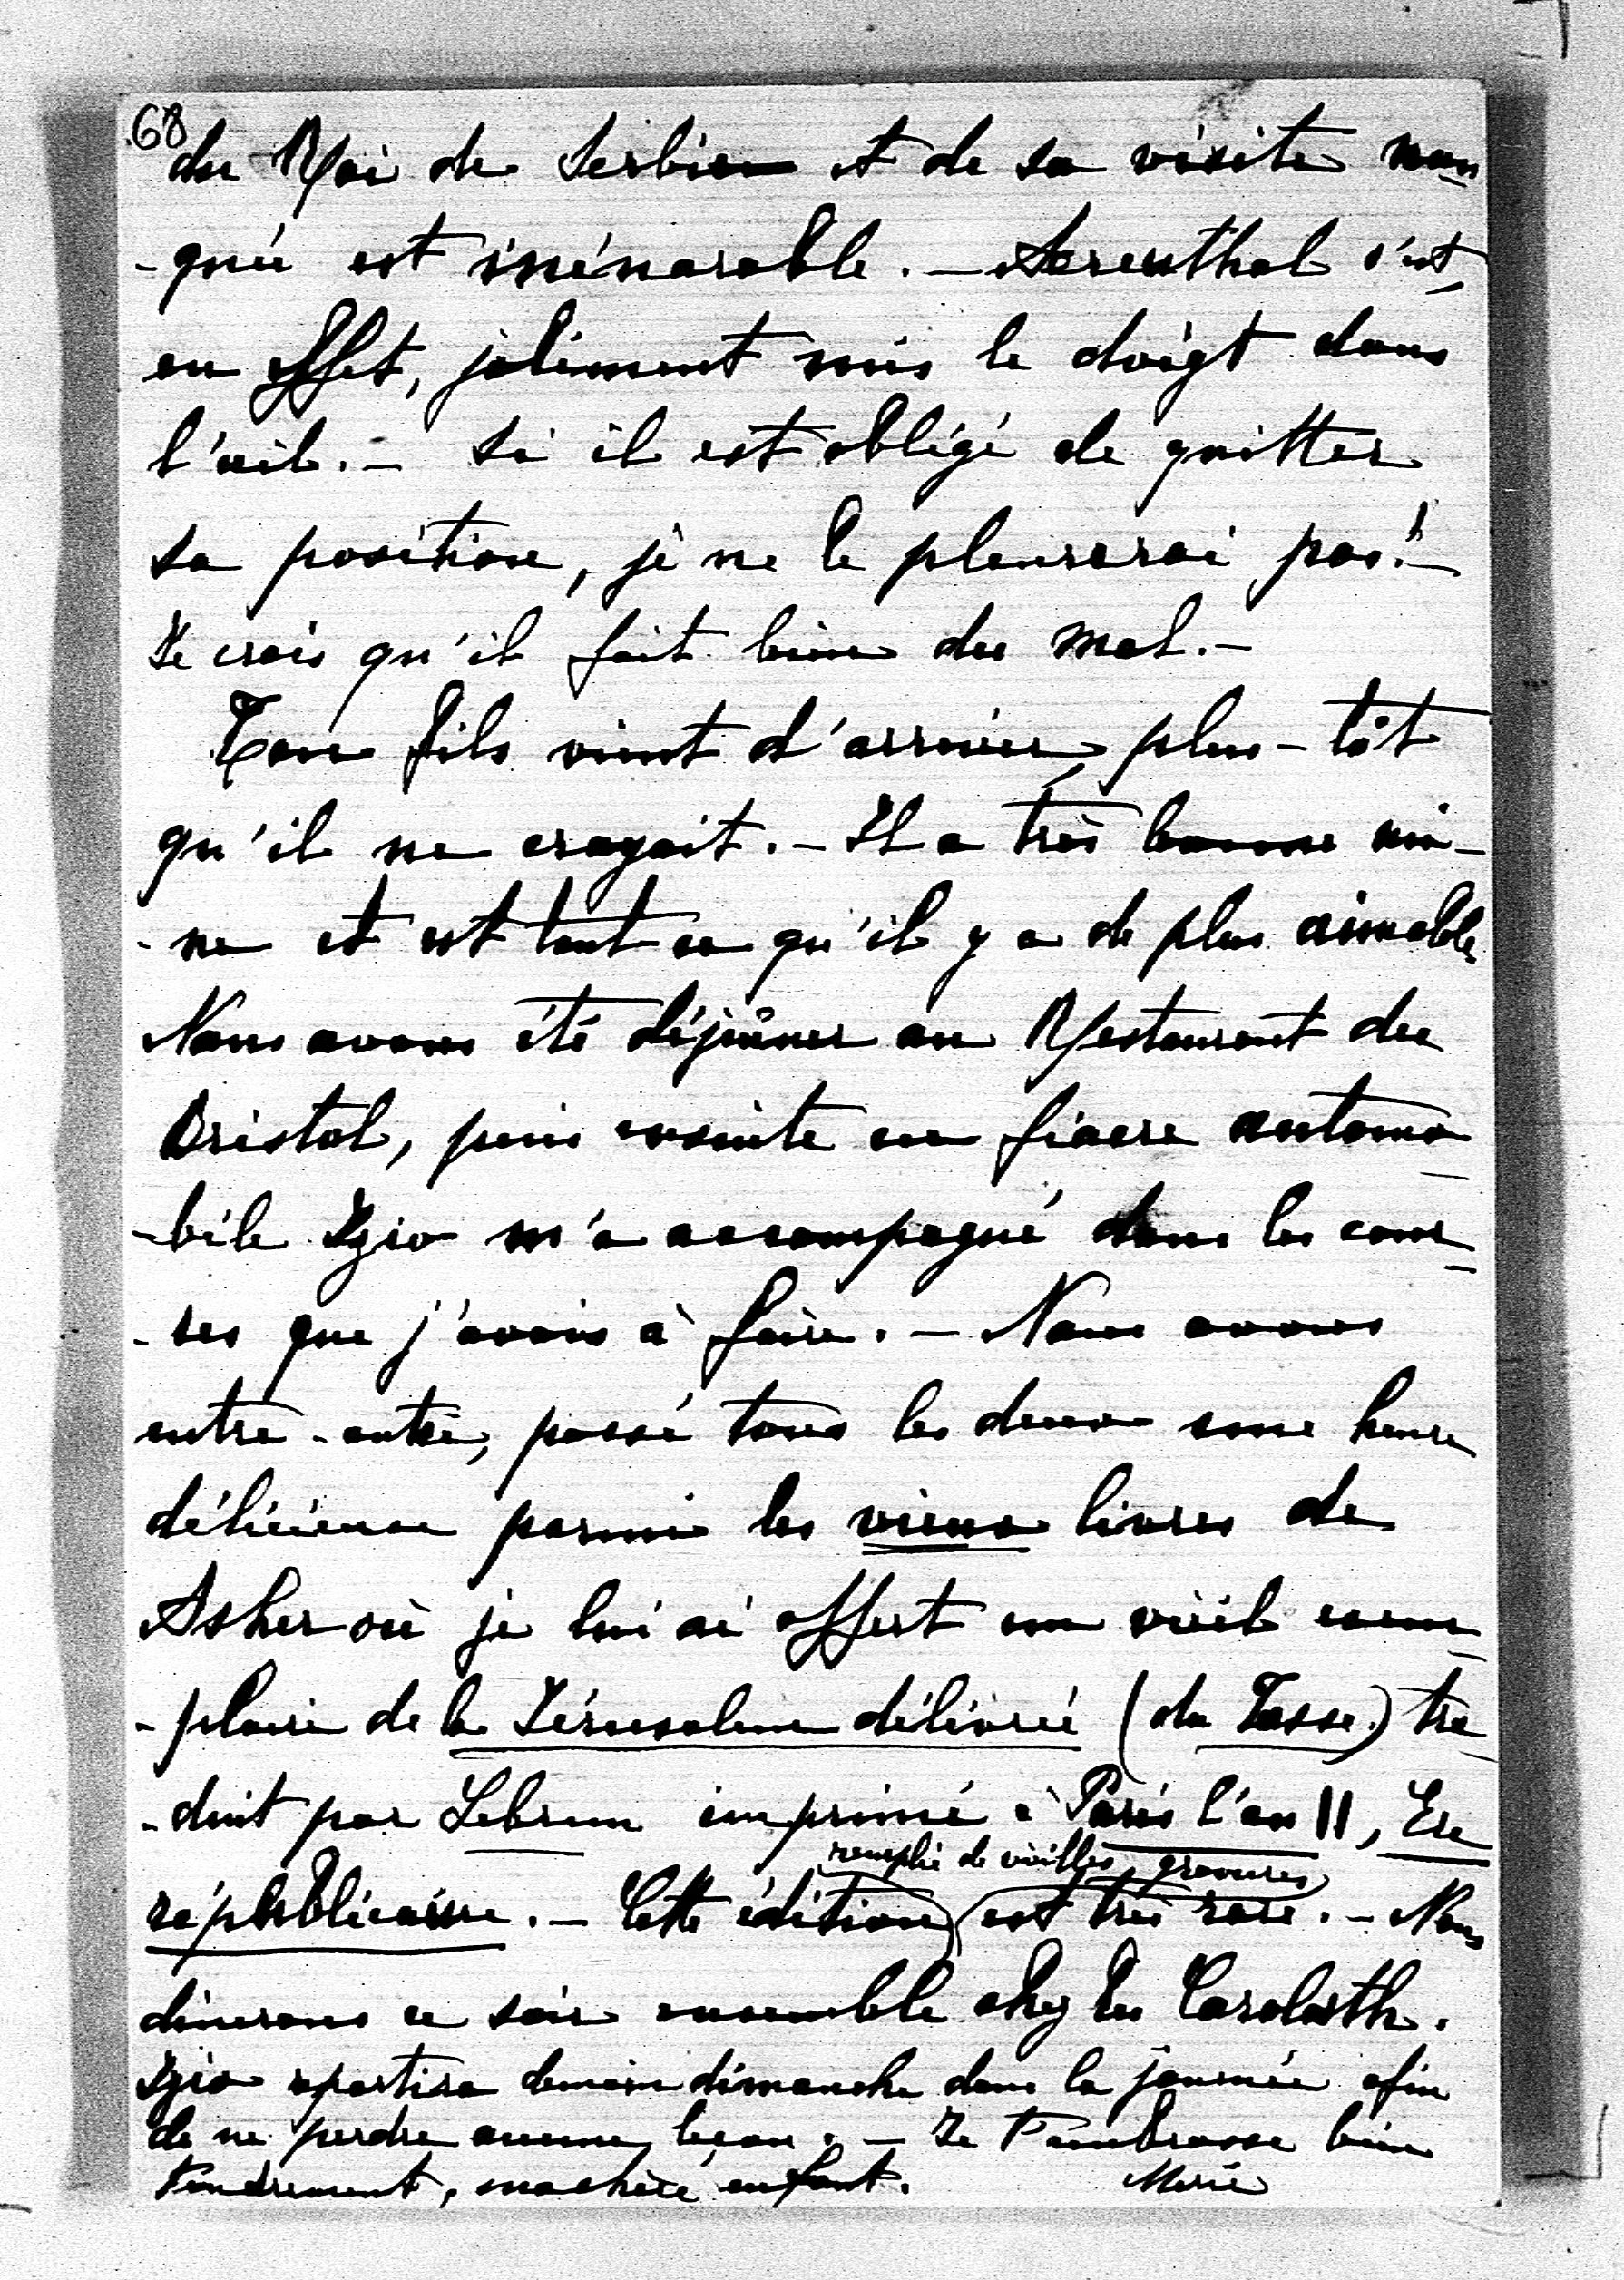 68
du Roi de Serbie et de sa visite man
-quée est inénarable. — Aerenthal s'est
en effet, joliment mis le doigt dans
l'œil. — Si il est obligé de quitter
sa position, je ne le pleurerai pas! —
Je crois qu'il fait bien du mal. —
Ton fils vient d'arriver, plus-tôt
qu'il ne croyait. — Il a très bonne mi-
-ne et est tout ce qu'il y a de plus aimable,
Nous avons été déjeûner au Restaurant du
Bristol, puis ensuite en fiacre automo
-bile Izio m'a accompagné dans les cour
-ses que j'avais à faire. — Nous avons
entre-autre, passé tous les deux une heure
délicieuse parmi les vieux livres de
Asher où je lui ai offert un vieil exem
-plaire de la Jérusalem délivrée (du Tasse) tra
-duit par Lebrun imprimé à Paris l'an II, Ere
remplie de vieilles gravures
républicaine. — Cette édition est très rare. — Nous
dinerons ce soir ensemble chez les Carolath.
Izio repartira demain dimanche dans la journée afin
de ne perdre aucune leçon. — Je t'embrasse bien
tendrement, ma chère enfant. Marie